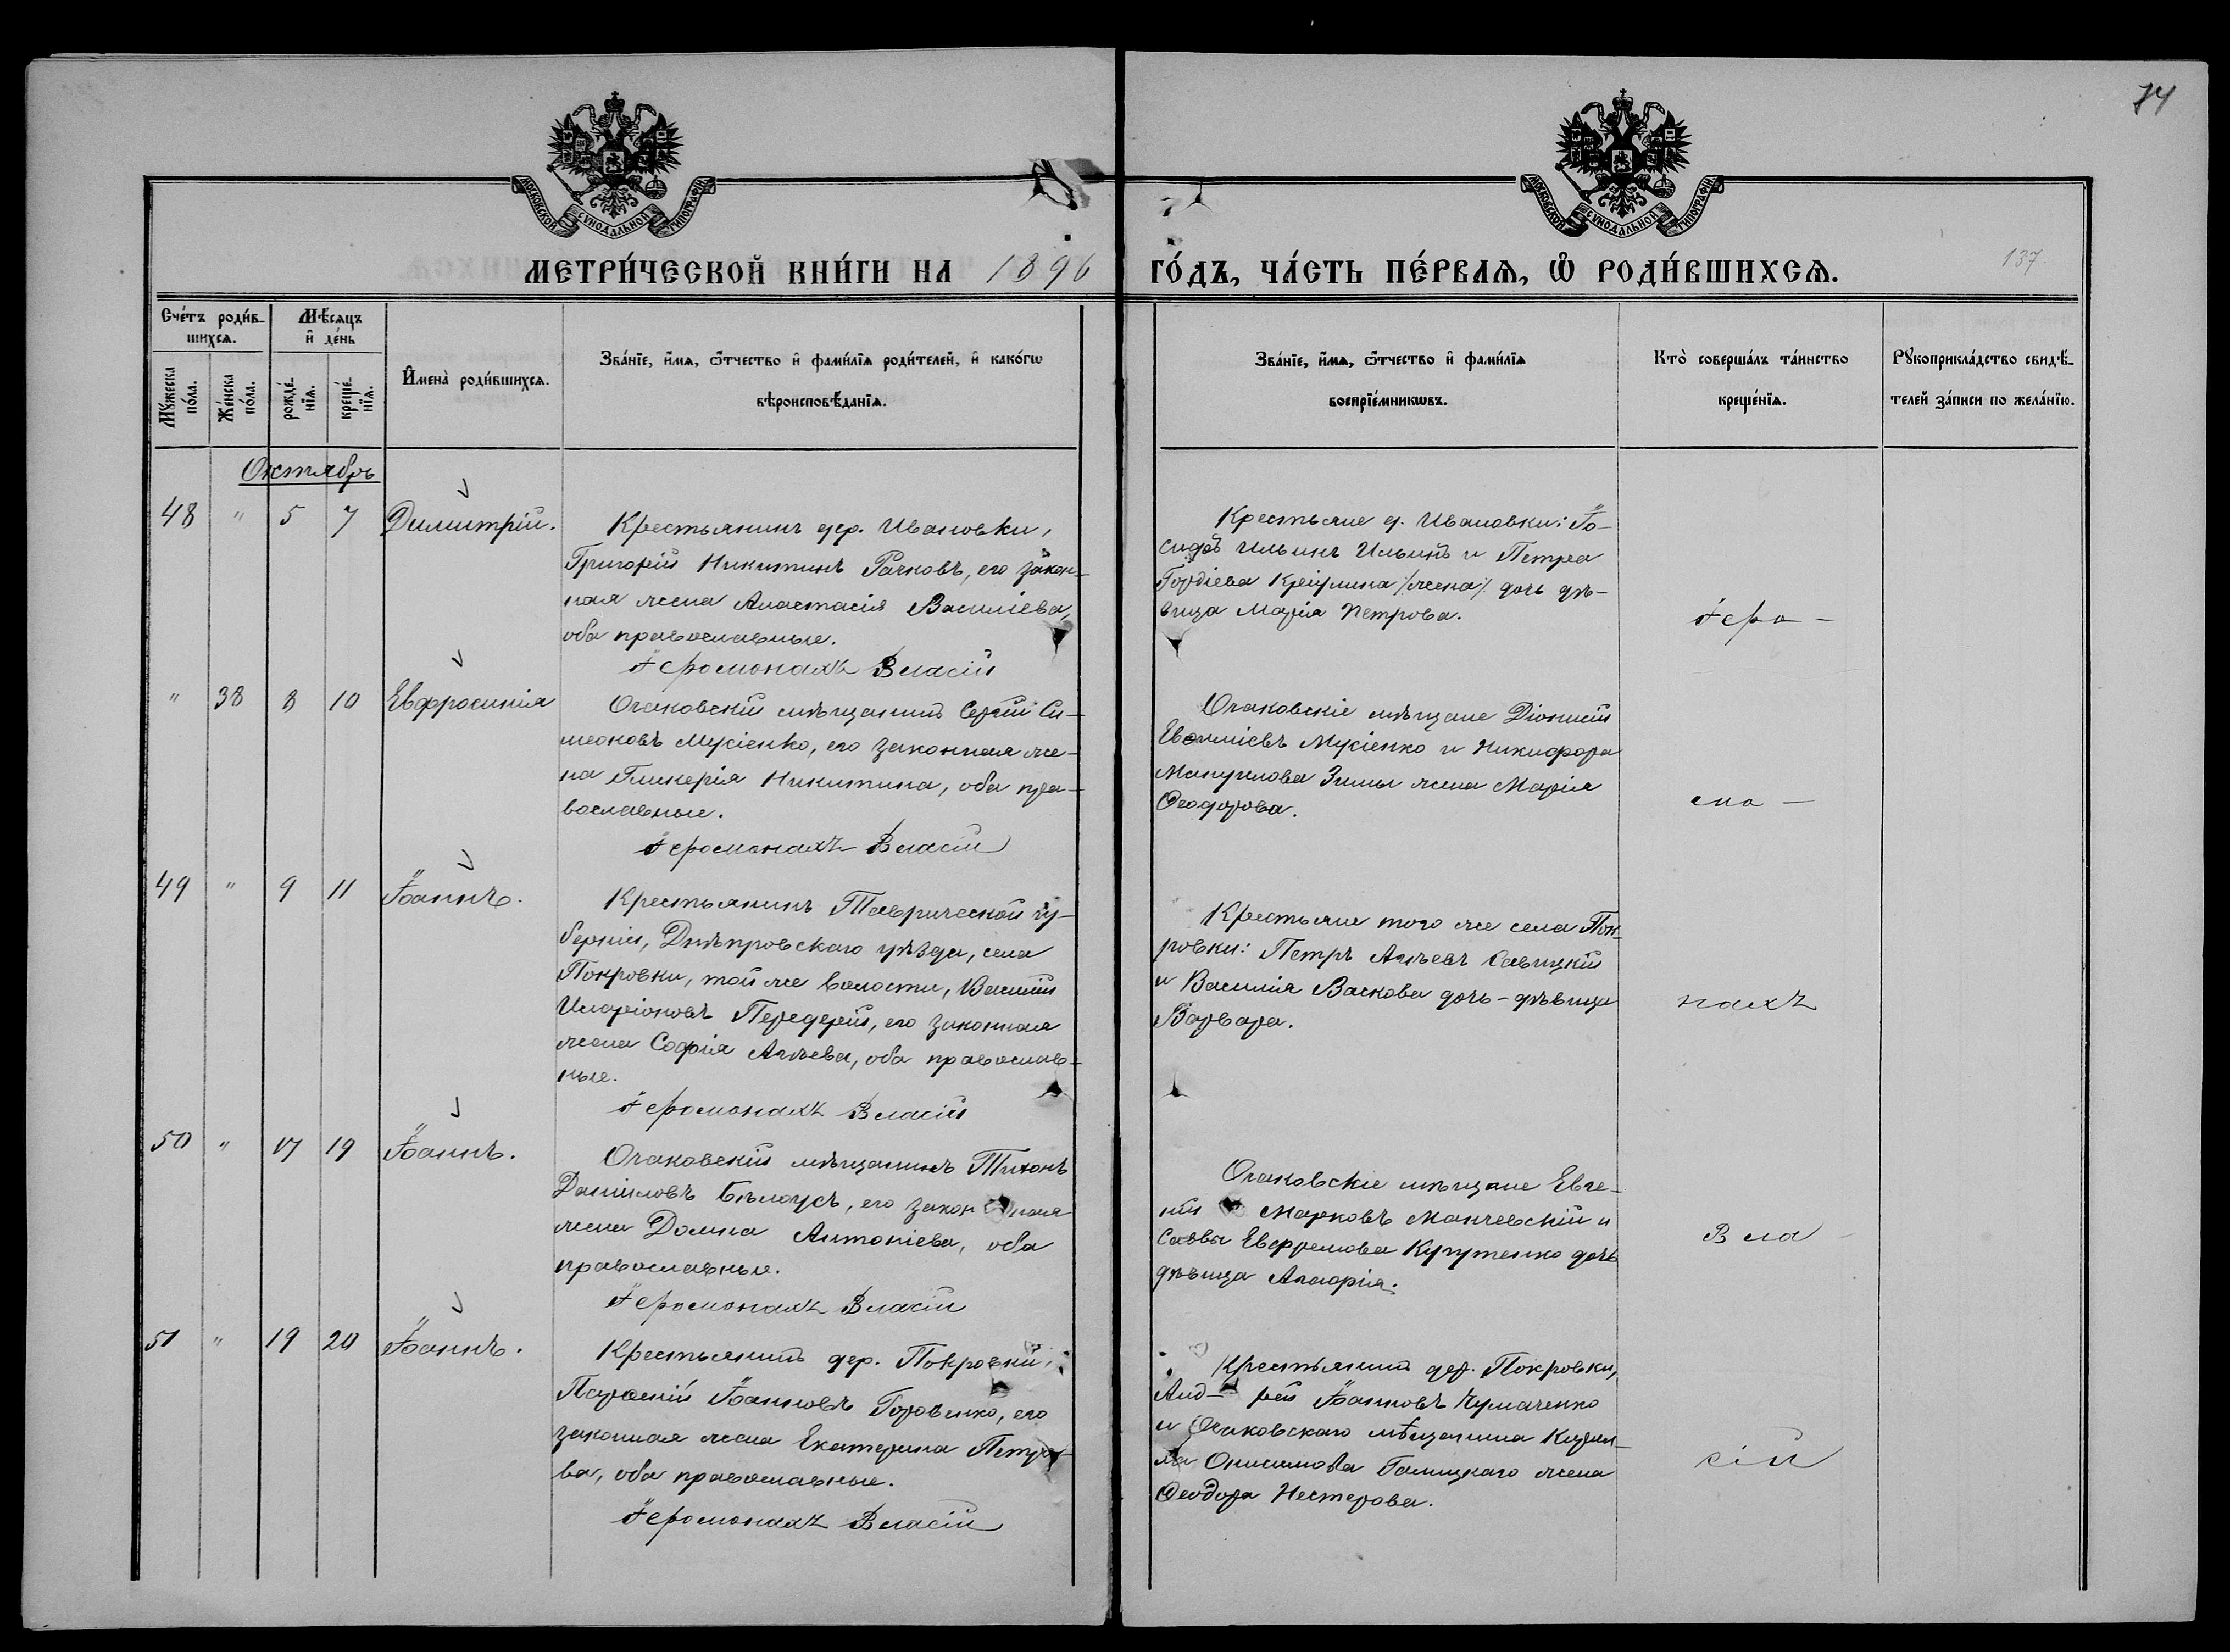 74
МОСКОВСКОЙ СѴНОДАЛЬНОЙ ТИПОГРАФІИ
МОСКОВСКОЙ СѴНОДАЛЬНОЙ ТИПОГРАФІИ
МЕТРИ́ЧЕСКОЙ КНИ́ГИ НА 1896 ГО́ДЪ, ЧА́СТЬ ПЕ́РВАѦ, Ѡ҆ РОДИ́ВШИХСѦ.
137.
Сче́тъ роди́в-
шихсѧ.
Мѣ́сѧцъ
и҆ де́нь
Мꙋ́жеска
по́ла.
Же́нска
по́ла.
рожде́-
нїѧ.
креще́-
нїѧ.
И҆мена̀ роди́вшихсѧ.
Зва́нїе, и҆́мѧ, ѻ҆́тчество и҆ фами́лїѧ роди́телей, и҆ како́гѡ
вѣроисповѣ́данїѧ.
Зва́нїе, и҆́мѧ, ѻ҆́тчество и҆ фами́лїѧ
воспрїе́мникѡвъ.
Кто̀ соверша́лъ та́инство
креще́нїѧ.
Рꙋкоприкла́дство свидѣ́-
телей за́писи по жела́нїю.
Октябрь
48 " 5 7 Димитрій.
Крестьянинъ дер. Ивановки,
Григорій Никитинъ Рачковъ, его закон-
ная жена Анастасія Василіева,
оба православные.
Іеромонахъ Власій
Крестьяне д. Ивановки: Іо-
сифъ Ильинъ Ильинъ и Петра
Гордіева /жена/ дочь дѣ-
вица Марія Петрова.
Іеро-
" 38 8 10 Евфросинія
Очаковскій мѣщанинъ Сергій Си-
меоновъ Мусіенко, его законная же-
на Гликерія Никитина, оба пра-
вославные.
Іеромонахъ Власій
Очаковскіе мѣщане Діонисій
Евѳиміевъ Мусіенко и Никифора
Мануилова Зимы жена Марія
Ѳеодорова.
мо-
49 " 9 11 Іоаннъ.
Крестьянинъ Таврической гу-
берніи, Днѣпровскаго уѣзда, села
Покровки, той же волости, Василій
Иларіоновъ Передерій, его законная
жена Софія Агѣева, оба православ-
ные.
Іеромонахъ Власій
Крестьяне того же села Пок-
ровки: Петръ Агѣевъ Савицкій
и Василія Васкова дочь-дѣвица
Варвара.
нахъ
50 " 17 19 Іоаннъ.
Очаковскій мѣщанинъ Тихонъ
Даніиловъ Бѣлоусъ, его законная
жена Домна Антоніева, оба
православные.
Іеромонахъ Власій
Очаковскіе мѣщане Евге-
ній Марковъ Манчевскій и
Саввы Ефремова дочь
дѣвица Агафія.
Вла
51 " 19 20 Іоаннъ.
Крестьянинъ дер. Покровки,
Іоанновъ Горовенко, его
законная жена Екатерина Петро-
ва, оба православные.
Іеромонахъ Власій
Крестьянинъ дер. Покровки,
Анд-рей Іоанновъ Чумаченко
и Очаковскаго мѣщанина Кирил-
ла Онисимова Галицкаго жена
Ѳеодора Нестерова.
сій